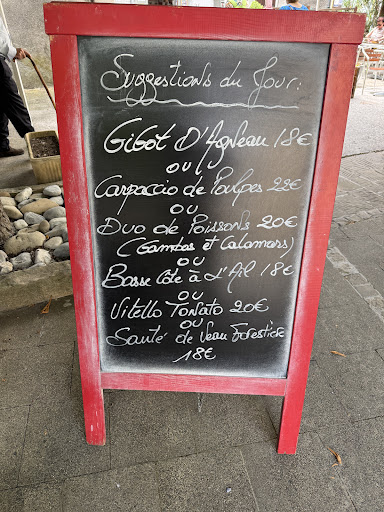 Suggestions du Jour:
Gigot D'Agneau 18€
ou
Carpaccio de Poulpes 22€
ou
Duo de Poissons 20€
(Gambas et Calamars)
ou
Basse Côte à L'Ail 18€
ou
Vitello Tonato 20€
ou
Sauté de Veau Forestière
18€